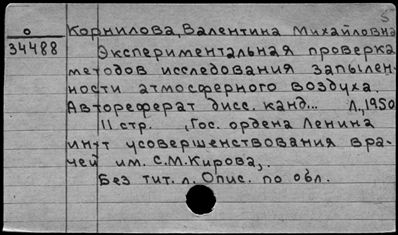 5
о
34488
Корнилова, Валентина Михайловна
Экспериментальная проверка
методов исследования запылен-
ности атмосферного воздуха.
Автореферат дисс. канд... Л., 1950
11 стр. , Гос. ордена Ленина
ин-т усовершенствования вра-
чей им. С.М.Кирова,.
Без тит. л. Опис. по обл.